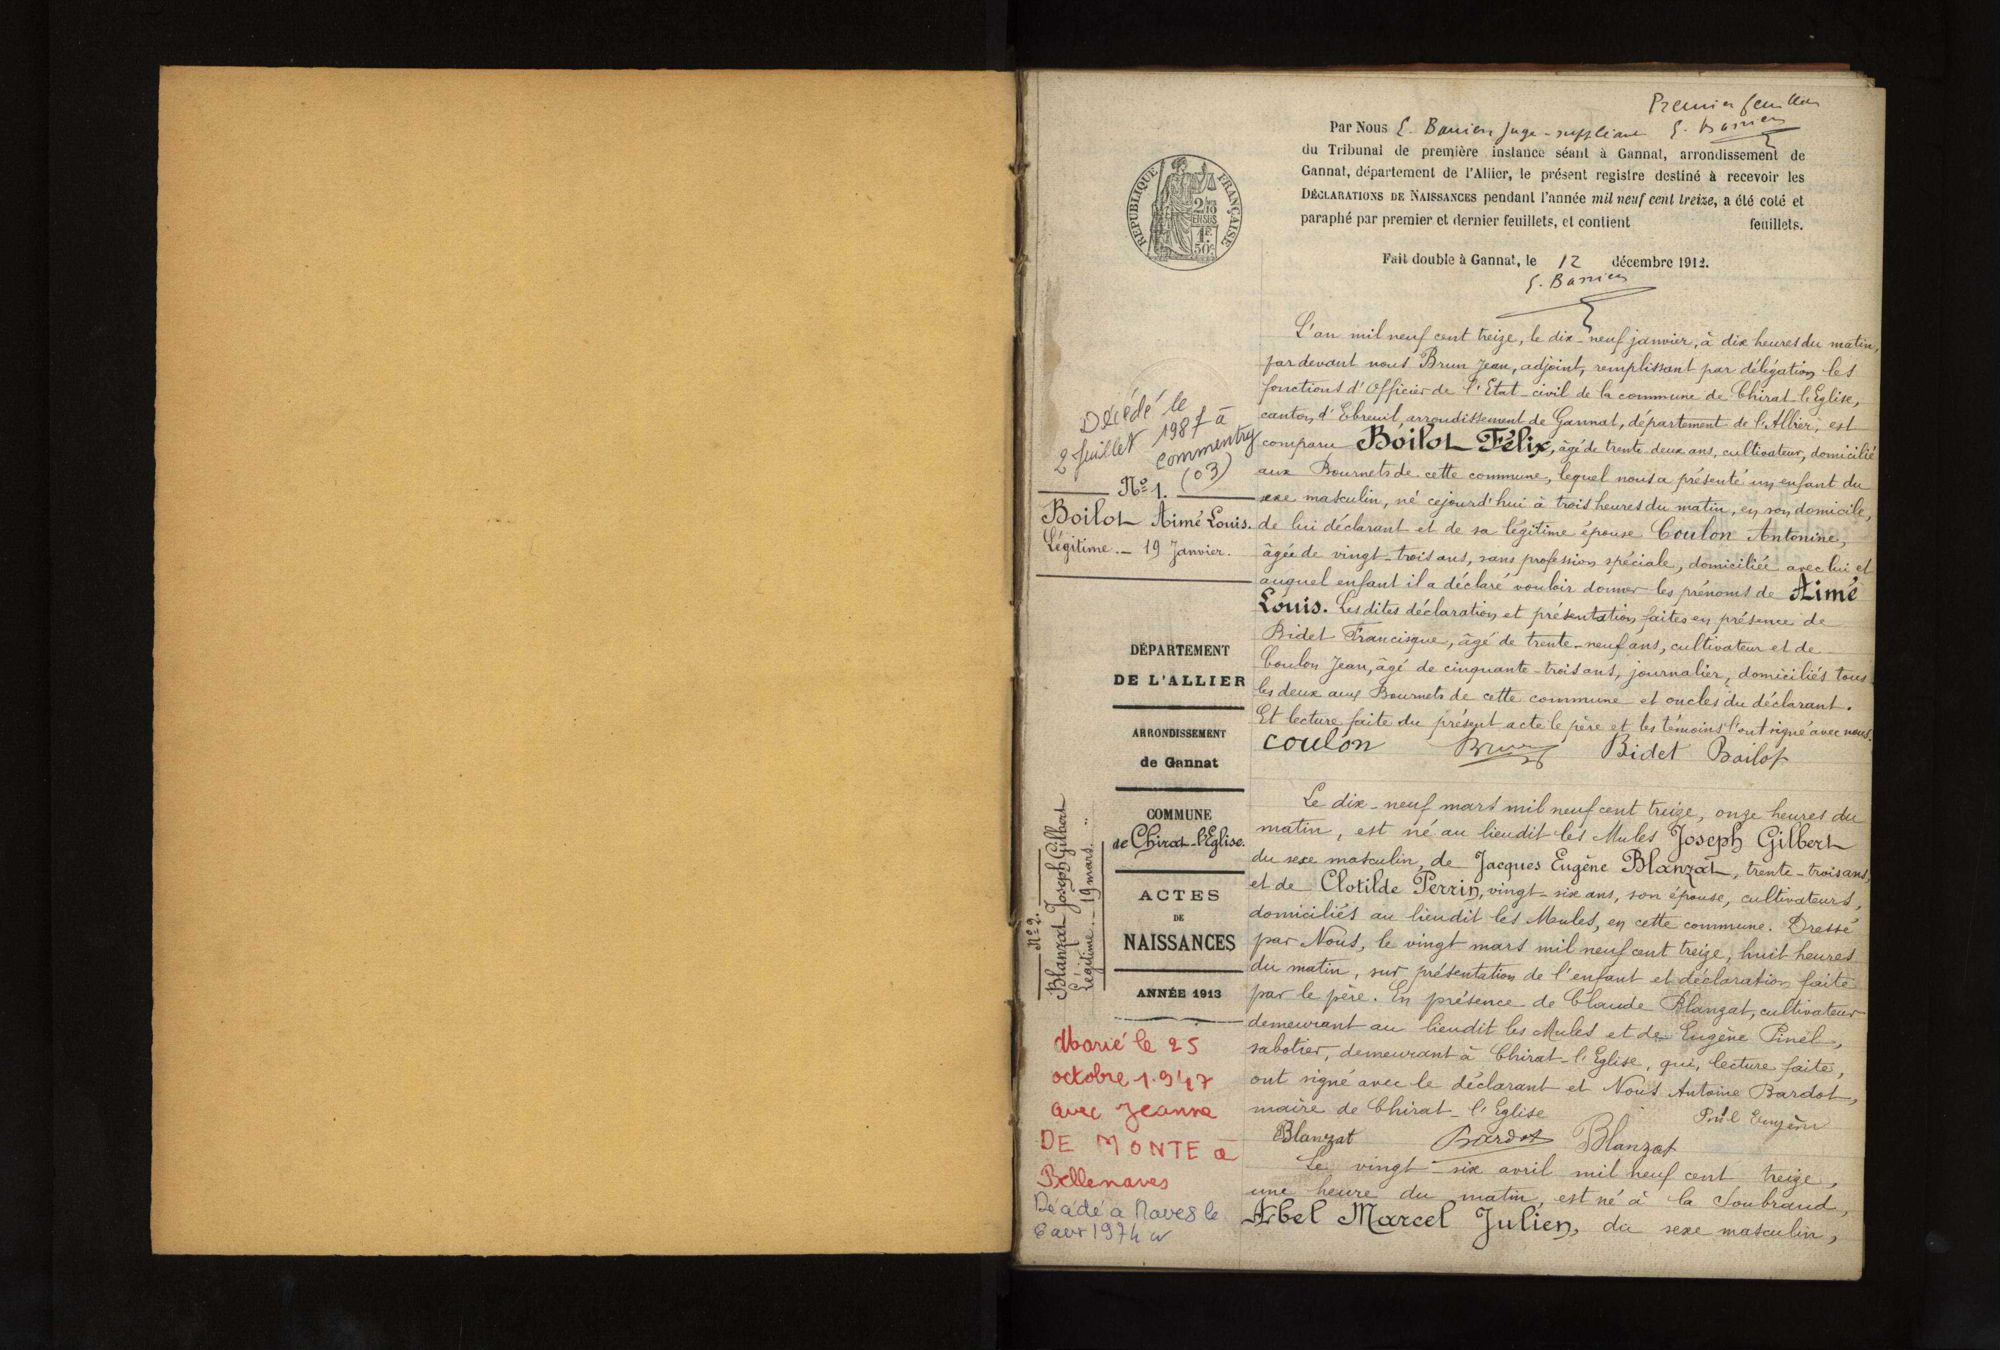 Premier feuillet
Par Nous E. Barrier Juge-suppléant E. Barrier
du Tribunal de première instance séant à Gannat, arrondissement de
Gannat, département de l'Allier, le présent registre destiné à recevoir les
DÉCLARATIONS DE NAISSANCES pendant l'année mil neuf cent treize, a été coté et
paraphé par premier et dernier feuillets, et contient feuillets.
Fait double à Gannat, le 12 décembre 1912.
E. Barrier
RÉPUBLIQUE FRANÇAISE
2/10
EN SUS
1F.
50c
L'an mil neuf cent treize, le dix-neuf janvier, à dix heures du matin,
par devant nous Brun Jean, adjoint, remplissant par délégation les
fonctions d'Officier de l'Etat-civil de la commune de Chirat-l'Eglise,
canton d'Ebreuil, arrondissement de Gannat, département de l'Allier, est
comparu Boilot Félix, âgé de trente deux ans, cultivateur, domicilié
aux Bournets de cette commune, lequel nous a présenté un enfant du
sexe masculin, né cejourd'hui à trois heures du matin, en son domicile,
de lui déclarant et de sa légitime épouse Coulon Antonine,
âgée de vingt-trois ans, sans profession spéciale, domiciliée avec lui et
auquel enfant il a déclaré vouloir donner les prénoms de Aimé
Louis. Les dites déclaration et présentation faites en présence de
Bidet Francisque, âgé de trente-neuf ans, cultivateur et de
Coulon Jean, âgé de cinquante-trois ans, journalier, domiciliés tous
les deux aux Bournets de cette commune et oncles du déclarant.
Et lecture faite du présent acte le père et les témoins l'ont signé avec nous.
Coulon Brun Bidet Boilot
Décédé le
2 Juillet 1987 à
Commentry
(03)
N° 1.
Boilot Aimé Louis.
Légitime. - 19 Janvier.
DÉPARTEMENT
DE L'ALLIER
ARRONDISSEMENT
de Gannat
COMMUNE
de Chirat-l'Eglise.
ACTES
DE
NAISSANCES
ANNÉE 1913
N° 2.
Blanzat Joseph Gilbert
Légitime. - 19 mars.
Le dix-neuf mars mil neuf cent treize, onze heures du
matin, est né au lieudit les Mules Joseph Gilbert
du sexe masculin, de Jacques Eugène Blanzat, trente-trois ans,
et de Clotilde Perrin, vingt-six ans, son épouse, cultivateurs,
domiciliés au lieudit les Mules, en cette commune. Dressé
par Nous, le vingt mars mil neuf cent treize, huit heures
du matin, sur présentation de l'enfant et déclaration faite
par le père. En présence de Claude Blanzat, cultivateur
demeurant au lieudit les Mules et de Eugène Pinel,
sabotier, demeurant à Chirat-l'Eglise, qui, lecture faite,
ont signé avec le déclarant et Nous Antoine Bardot,
maire de Chirat-l'Eglise
Blanzat Bardot Blanzat
Marié le 25
octobre 1.947
avec Jeanne
DE MONTE à
Bellenaves
Décédé à Naves le
6 avr 1974
Le vingt-six avril mil neuf cent treize,
une heure du matin, est né à la Soubraud,
Abel Marcel Julien, du sexe masculin,